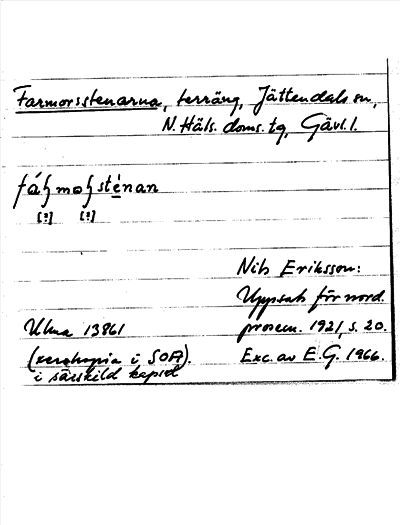 Farmorsstenarna, terräng, Jättendals sn,
N. Häls. doms. tg, Gävl. l.
[?] [?]
Nils Eriksson:
Uppsats för nord.
Ulma 13861 prosem. 1921, s. 20.
(xerokopia i SOFI). Exc. av E. G. 1966.
i särskild kapsel